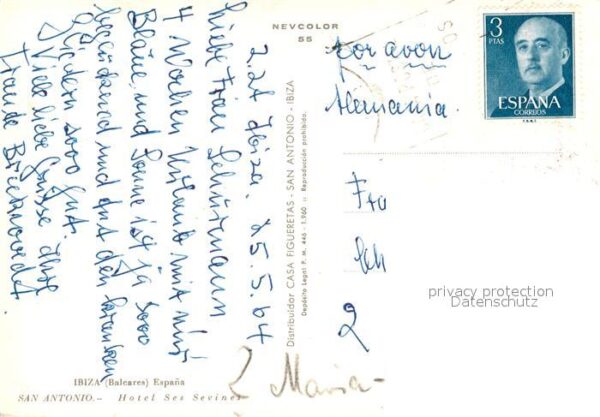 NEVCOLOR
55
z.Zt. Ibiza, 25.5.64
Liebe Frau Schürmann
4 Wochen Urlaub mit nur
Bläue und Sonne ist ja sooo
und tut den
Gliedern sooo gut.
Viele liebe Grüsse Ihre
Traude
Distribuidor CASA FIGUERETAS - SAN ANTONIO - IBIZA
Depósito Legal P. M. 446 - 1.960 o Reproducción prohibida.
por avion
Alemania.
3
PTAS
ESPAÑA
CORREOS
Frau
Sch
2
privacy protection
Datenschutz
Maria-
IBIZA (Baleares) España
SAN ANTONIO.- Hotel Ses Sevines